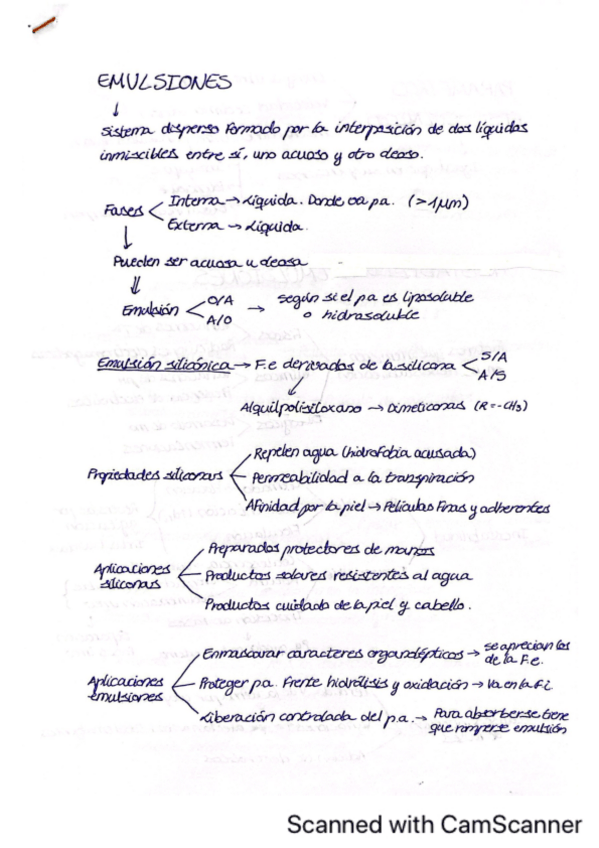 EMULSIONES
↓
Sistema disperso formado por la interposición de dos líquidos
inmiscibles entre sí, uno acuoso y otro oleoso.
Fases
Interna → Líquida. Donde va pa. (>1μm)
Externa → Líquida.
↓
Pueden ser acuosa u oleosa
⇓
Emulsión
O/A
A/O
→ según si el pa es liposoluble
o hidrosoluble
Emulsión silicónica → F.e derivados de la silicona
S/A
A/S
Alquilpolisiloxano → Dimeticonas (R=-CH3)
Propiedades siliconas
Repelen agua (hidrofobia acusada)
Permeabilidad a la transpiración
Afinidad por la piel → Películas finas y adherentes
Aplicaciones
siliconas
Preparados protectores de manos
Productos solares resistentes al agua
Productos cuidado de la piel y cabello.
Aplicaciones
emulsiones
Enmascarar caracteres organolépticos → se aprecian los
de la F.e.
Proteger pa. frente hidrólisis y oxidación → Va en la F.i.
Liberación controlada del p.a. → Para absorberse tiene
que romperse emulsión
Scanned with CamScanner